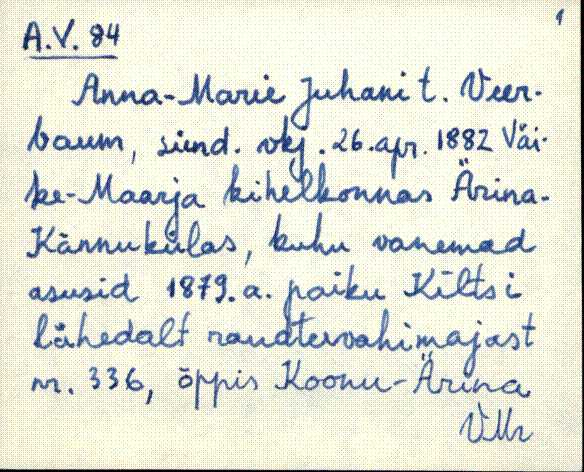 1
A.V. 84
Anna-Marie Juhani t. Veer-
baum, sünd. vkj. 26. apr. 1882 Väi-
ke-Maarja kihelkonnas Ärina-
Kännukülas, kuhu vanemad
asusid 1879. a. paiku Kiltsi
lähedalt raudteevahimajast
nr. 336, õppis Koonu-Ärina
VMr